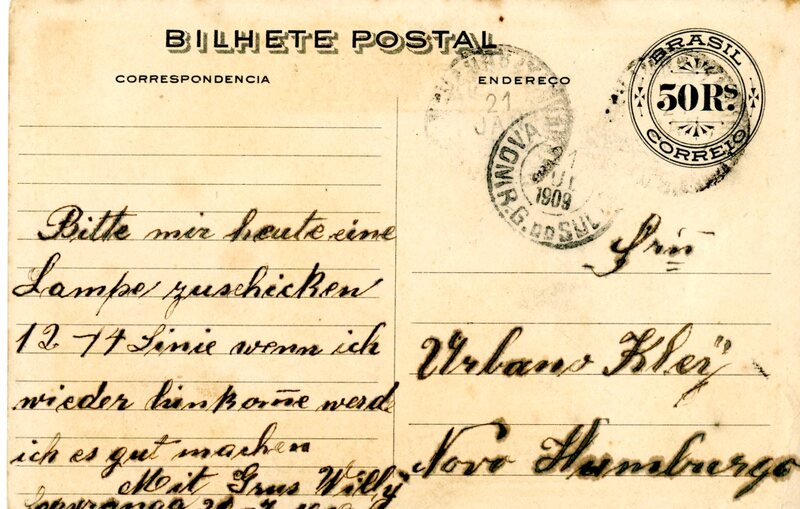 BILHETE POSTAL
CORRESPONDENCIA
ENDEREÇO
BRASIL
50 Rs
CORREIO
21
NOVA
1909
R.G. DO SUL
Bitte mir heute eine
Lampe zuschicken
12-14 Linie wenn ich
wieder hinkom̅e werde
ich es gut machen
Mit Grus Willy
Urbano Kley
Novo Hamburgo